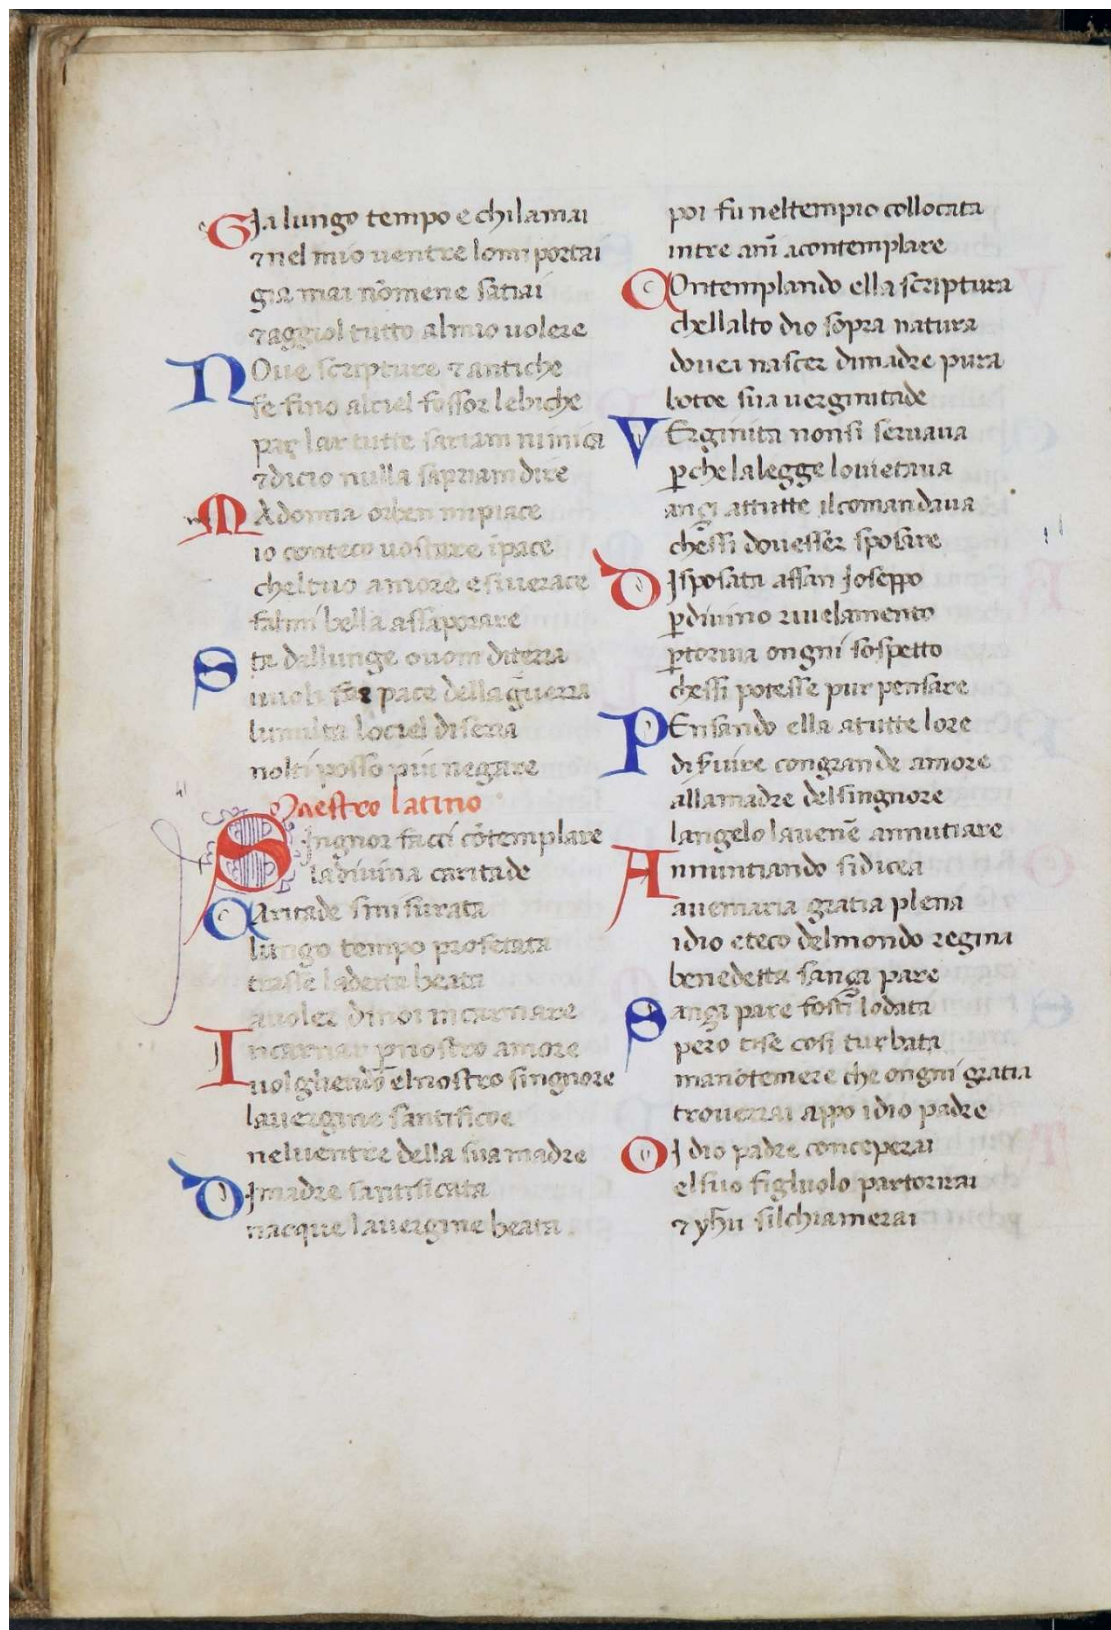 GJa lungo tempo e chilamai
⁊nel mio uentre lomi portai
gia mai nōmene satiai
⁊aggiol tutto almio uolere
NOue scripture ⁊ antiche
se fino alciel fossor lebiche
par lar tutte sariam nimica
⁊dicio nulla sapriam dire
MAdonna orben mipiace
io conteco uo stare ipace
cheltuo amore e siuerace
fatmi bella assaporare
Sta dallunge ouom diterra
iuoli far pace della guerra
lumilta lociel diserra
nolti posso piu negare
Maestro latino
SIngnor facci cōtemplare
la diuina caritade
CAritade smisurata
lungo tempo profetata
trasse ladeita beata
auoler dinoi incarnare
Incarnar ꝑnostro amore
uolgliendo elnostro singnore
lauergine santificoe
neluentre della sua madre
DJmadre santificata
nacque lauergine beata
poi fu neltempio collocata
intre anni acontemplare
COntemplando ella scriptura
chellalto dio sopra natura
douea nascer dimadre pura
botoe sua uerginitade
VErginita nonsi seruaua
ꝑche lalegge louietaua
ançi attutte ilcomandaua
chessi douesser sposare
DJsposata assan Joseppo
ꝑdiuino riuelamento
ꝑtorna ongni sospetto
chessi potesse pur pensare
PEnsando ella atutte lore
diseruire congrande amore
allamadre delsingnore
langelo lauenē annutiare
Annuntiando sidicea
auemaria gratia plena
idio eteco delmondo regina
benedetta sança pare
Sança pare fosti lodata
pero tise cosi turbata
manotemere che ongni gratia
trouerrai appo idio padre
DJ dio padre conceperai
elsuo figluolo partorirai
⁊ yhu silchiamerai